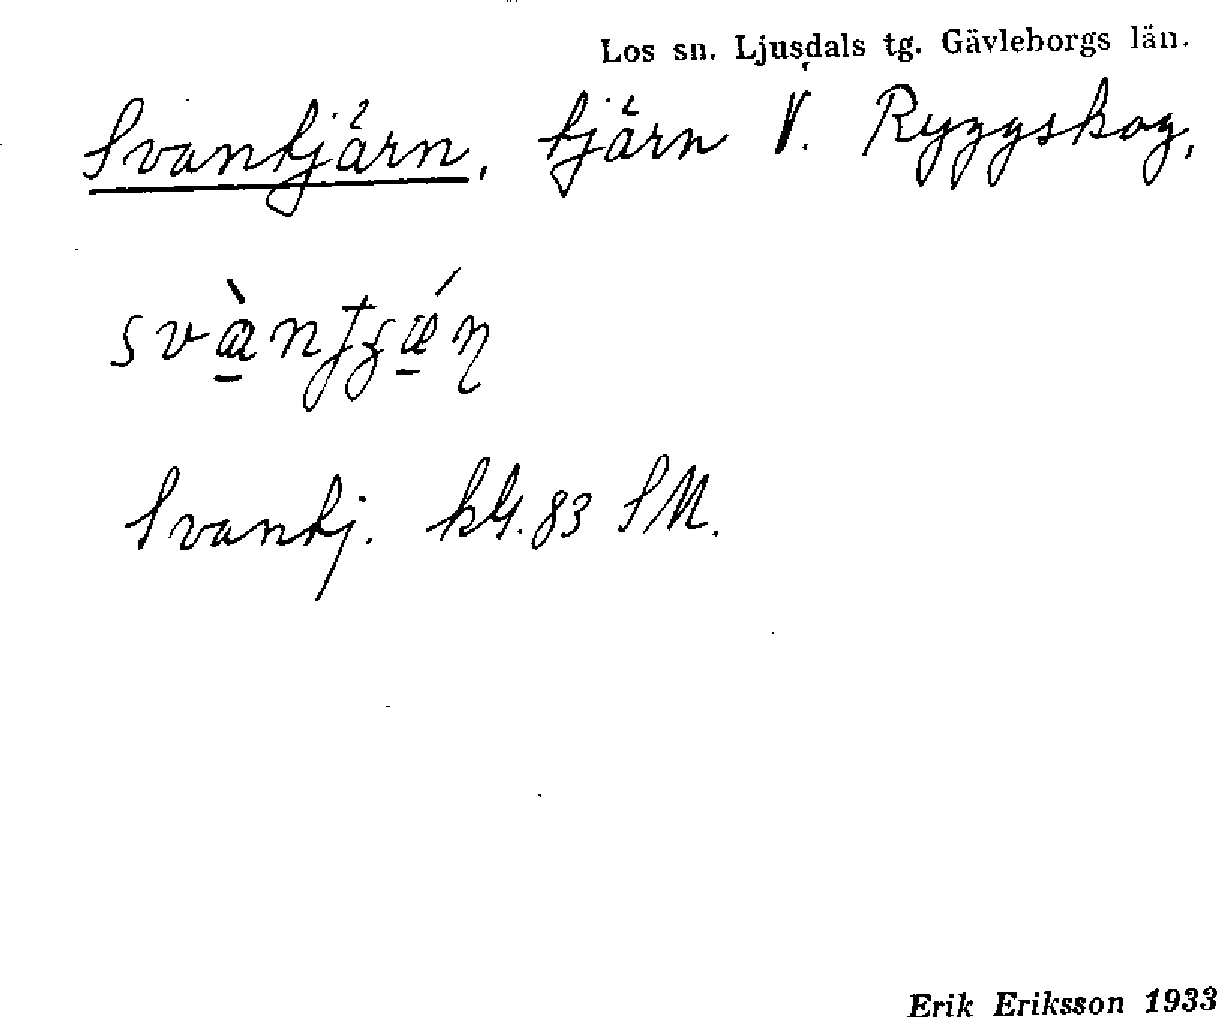 Los sn. Ljusdals tg. Gävleborgs län.
Svantjärn, tjärn V. Ryggskog,
Svantj. kbl. 83 SM.
Erik Eriksson 1933